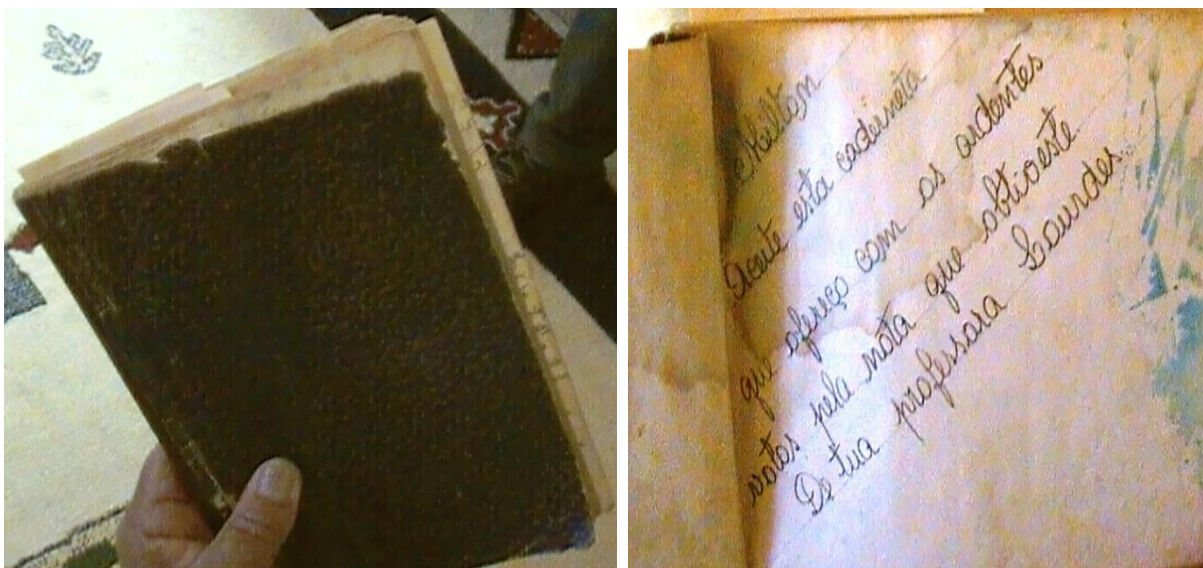 Melton
Aceite esta caderneta
que ofereço com os ardentes
votos pela nota que obtiveste.
De tua professora Lourdes.